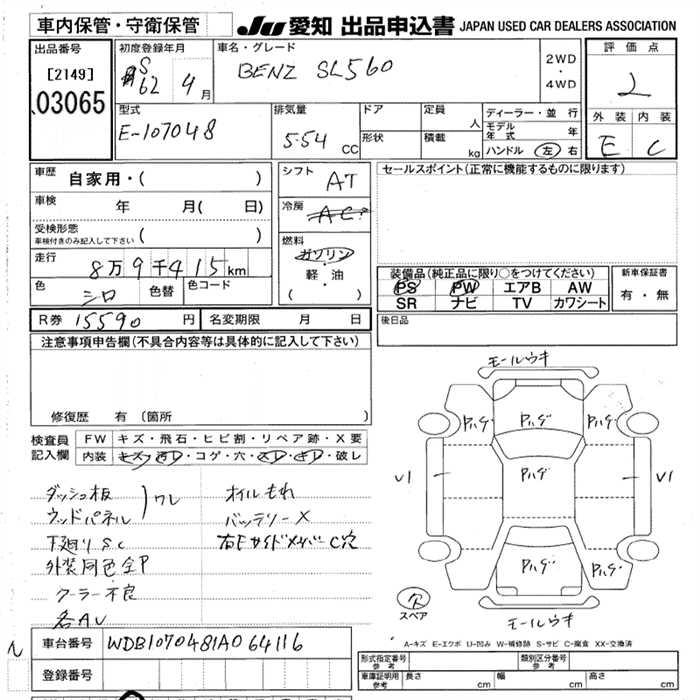 車内保管・守衛保管
JU 愛知 出品申込書 JAPAN USED CAR DEALERS ASSOCIATION
出品番号
[2149]
03065
初度登録年月
S
62 4 月
車名・グレード
BENZ SL560
2WD
・
4WD
評価点
外装 内装
E C
型式
E-107048
排気量
5.54 CC
ドア
形状
定員
人
積載
kg
ディーラー・並行
モデル年式 年
ハンドル 左 右
車歴
自家用・( )
車検
年 月( 日)
受検形態
車検付きのみ記入して下さい ( )
走行
8万9千415km
色
シロ
色替
色コード
シフト
AT
冷房
AC
燃料
ガソリン
・
軽・油
( )
セールスポイント(正常に機能するものに限ります)
装備品(純正品に限り○をつけてください)
PS PW エアB AW
SR ナビ TV カワシート
新車保証書
有・無
後日品
R券 15590 円
名変期限 月 日
注意事項申告欄(不具合内容等は具体的に記入して下さい)
修復歴 有 (箇所 )
検査員
記入欄
FW キズ・飛石・ヒビ割・リペア跡・X要
内装 キズ・汚レ・コゲ・穴・スレ・キレ・破レ
ダッシュ板
ウッドパネル
ワレ
下廻りSC
外装同色全P
クーラー不良
各AU
オイルもれ
バッテリーX
右Eサイドメンバー C穴
モールウキ
Pハゲ Pハゲ Pハゲ
U1 Pハゲ U1
Pハゲ Pハゲ
モールウキ
欠
スペア
A-キズ E-エクボ U-凹み W-補修跡 S-サビ C-腐食 XX-交換済
車台番号 WDB1070481A064116
登録番号
形式指定番号
参考
類別区分番号
参考
車庫証明用
参考
長さ cm 幅 cm 高さ cm